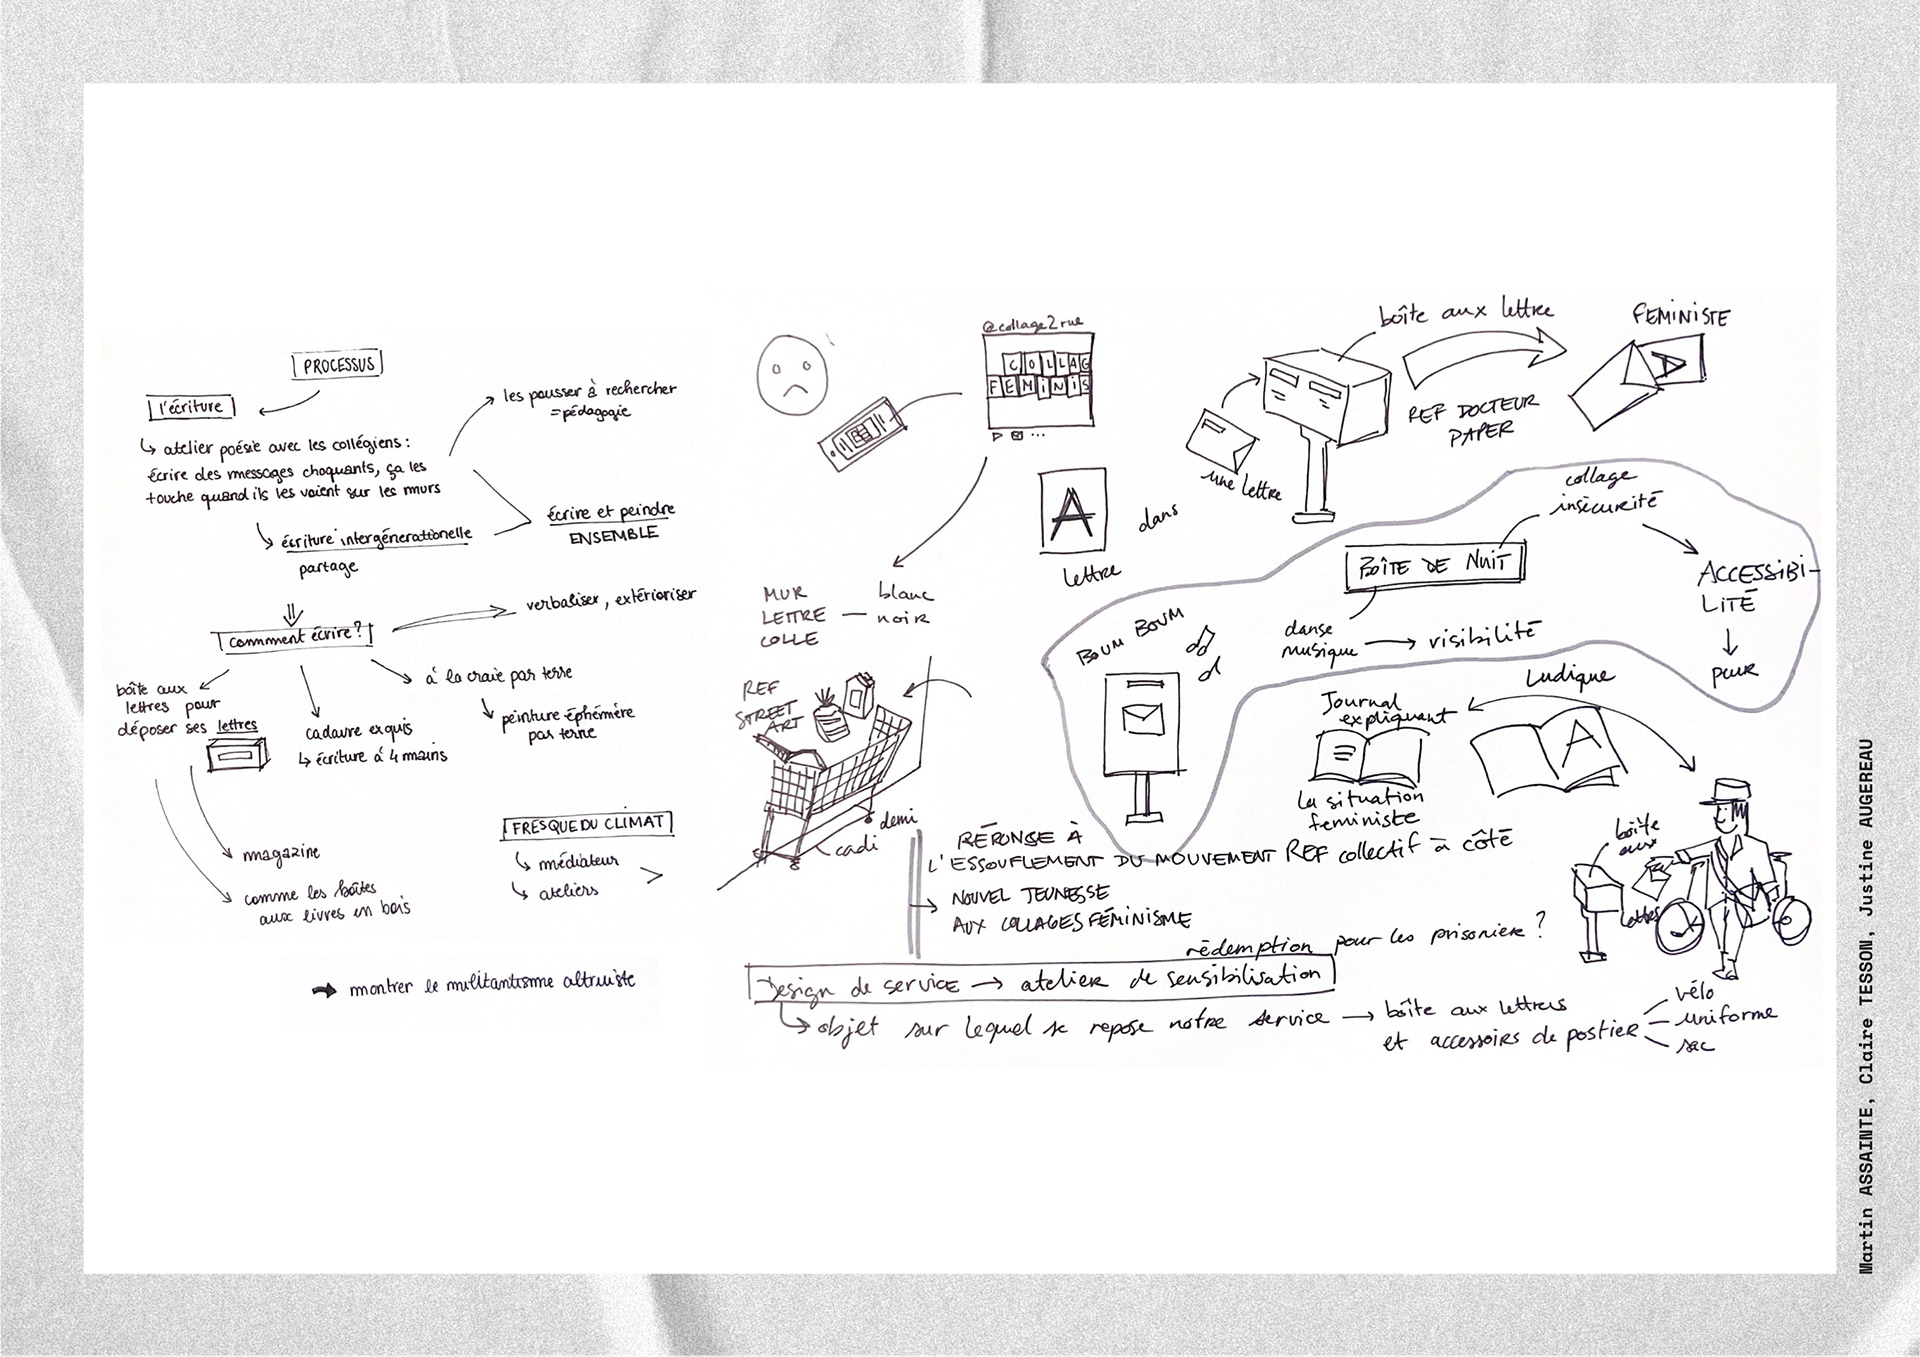 PROCESSUS
l'écriture
↳ atelier poésie avec les collégiens :
écrire des messages choquants, ça les
touche quand ils les voient sur les murs
les pousser à rechercher
= pédagogie
écriture intergénerationelle
partage
écrire et peindre
ENSEMBLE
comment écrire ?
verbaliser, extérioriser
boîte aux
lettres pour
déposer ses lettres
cadavre exquis
↳ écriture à 4 mains
à la craie par terre
peinture éphémère
par terre
magazine
comme les boîtes
aux livres en bois
FRESQUE DU CLIMAT
médiateur
ateliers
montrer le militantisme altruiste
@collage2rue
COLLAG
FEMINIS
MUR
LETTRE — blanc
COLLE noir
REF
STREET
ART
demi
cadi
A
lettre
dans
une lettre
boîte aux lettre
REF DOCTEUR
PAPER
FEMINISTE
A
collage
insécurité
BOÎTE DE NUIT
ACCESSIBI-
LITÉ
peur
danse
musique → visibilité
BOUM BOUM
Ludique
Journal
expliquant
La situation
feministe
A
boîte
aux
lettres
RÉPONSE À
L'ESSOUFLEMENT DU MOUVEMENT REF collectif à côté
NOUVEL JEUNESSE
AUX COLLAGES FÉMINISME
rédemption pour les prisoniere ?
Design de service → atelier de sensibilisation
↳ objet sur lequel se repose notre service → boîte aux lettres
et accessoirs de postier
vélo
uniforme
sac
Martin ASSAINTE, Claire TESSON, Justine AUGEREAU